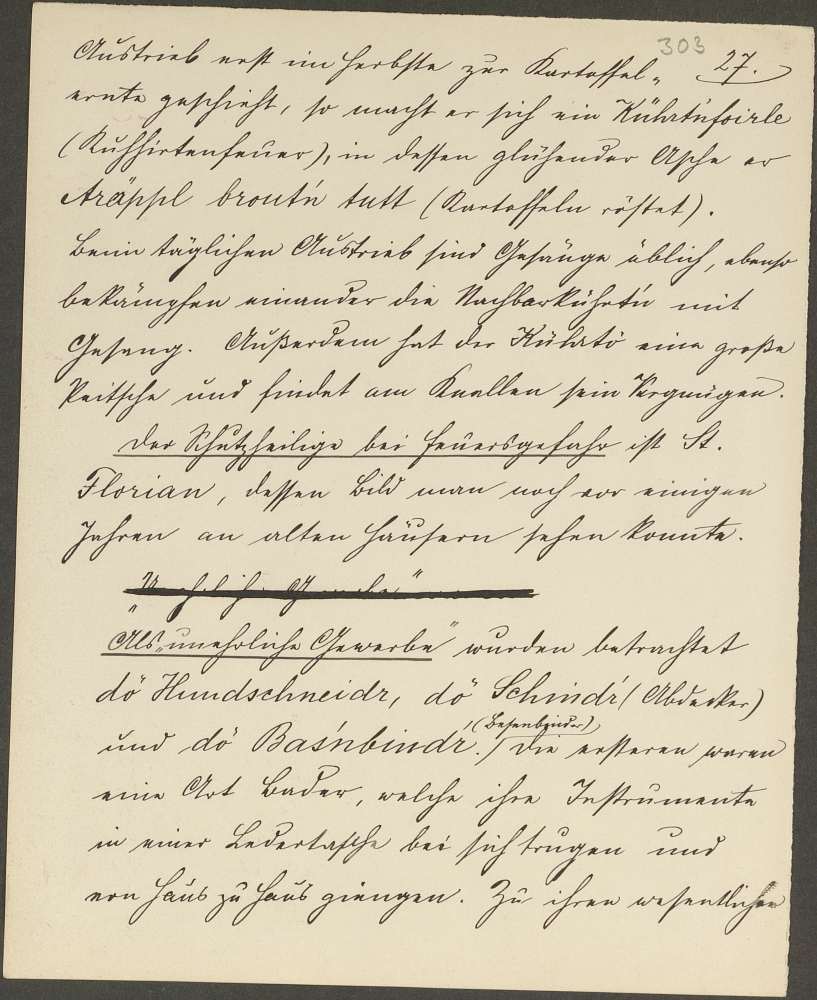 303
27.
Austrieb erst im Herbste zur Kartoffel-
ernte geschieht, so macht er sich ein Kühatńfoirle
(Kuhhirtenfeuer), in dessen glühender Asche er
Aräppl broutń tutt (Kartoffeln röstet).
Beim täglichen Austrieb sind Gesänge üblich, ebenso
bekämpfen einander die Nachbarkührtń mit
Gesang. Außerdem hat der Kühatö eine große
Peitsche und findet am Knallen sein Vergnügen.
Der Schutzheilige bei Feuersgefahr ist St.
Florian, dessen Bild man noch vor einigen
Jahren an alten Häusern sehen konnte.
Als „unehrliche Gewerbe" wurden betrachtet
dö Hundschneidr, dö Schindŕ (Abdecker)
und dö Baśnbindr. (Besenbinder) Die ersteren waren
eine Art Bader, welche ihre Instrumente
in einer Ledertasche bei sich trugen und
von Haus zu Haus giengen. Zu ihren wesentlichen